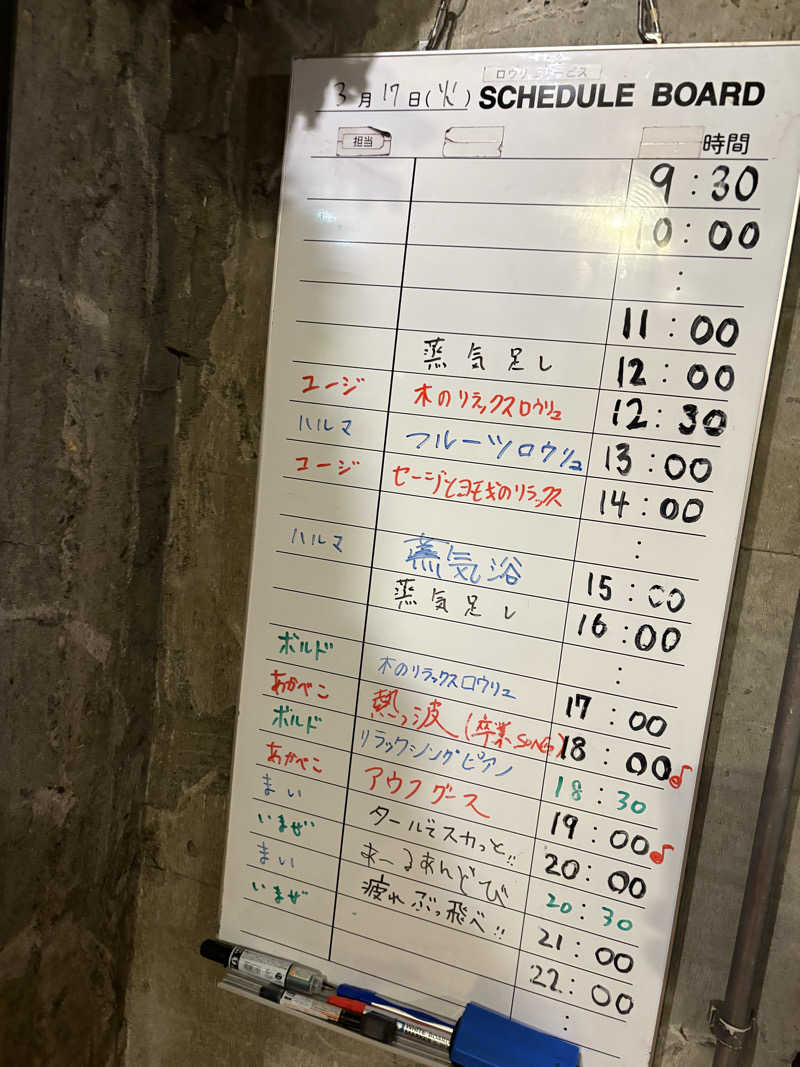 ロウリュサービス
3月17日(火) SCHEDULE BOARD
担当 時間
9:30
10:00
:
11:00
蒸気足し 12:00
ユージ 木のリラックスロウリュ 12:30
ハルマ フルーツロウリュ 13:00
ユージ セージとヨモギのリラックス 14:00
:
ハルマ 蒸気浴 15:00
蒸気足し 16:00
:
ボルド 木のリラックスロウリュ 17:00
あかべこ 熱っ波(卒業SONG) 18:00♪
ボルド リラックシングピアノ 18:30
あかべこ アウフグース 19:00♪
まい タールでスカッと!! 20:00
いまぜ あーるあんどび 20:30
まい 疲れぶっ飛べ!! 21:00
いまぜ 22:00
: